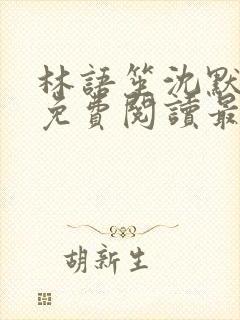 林語笙沈默
免費閱讀最
胡新生